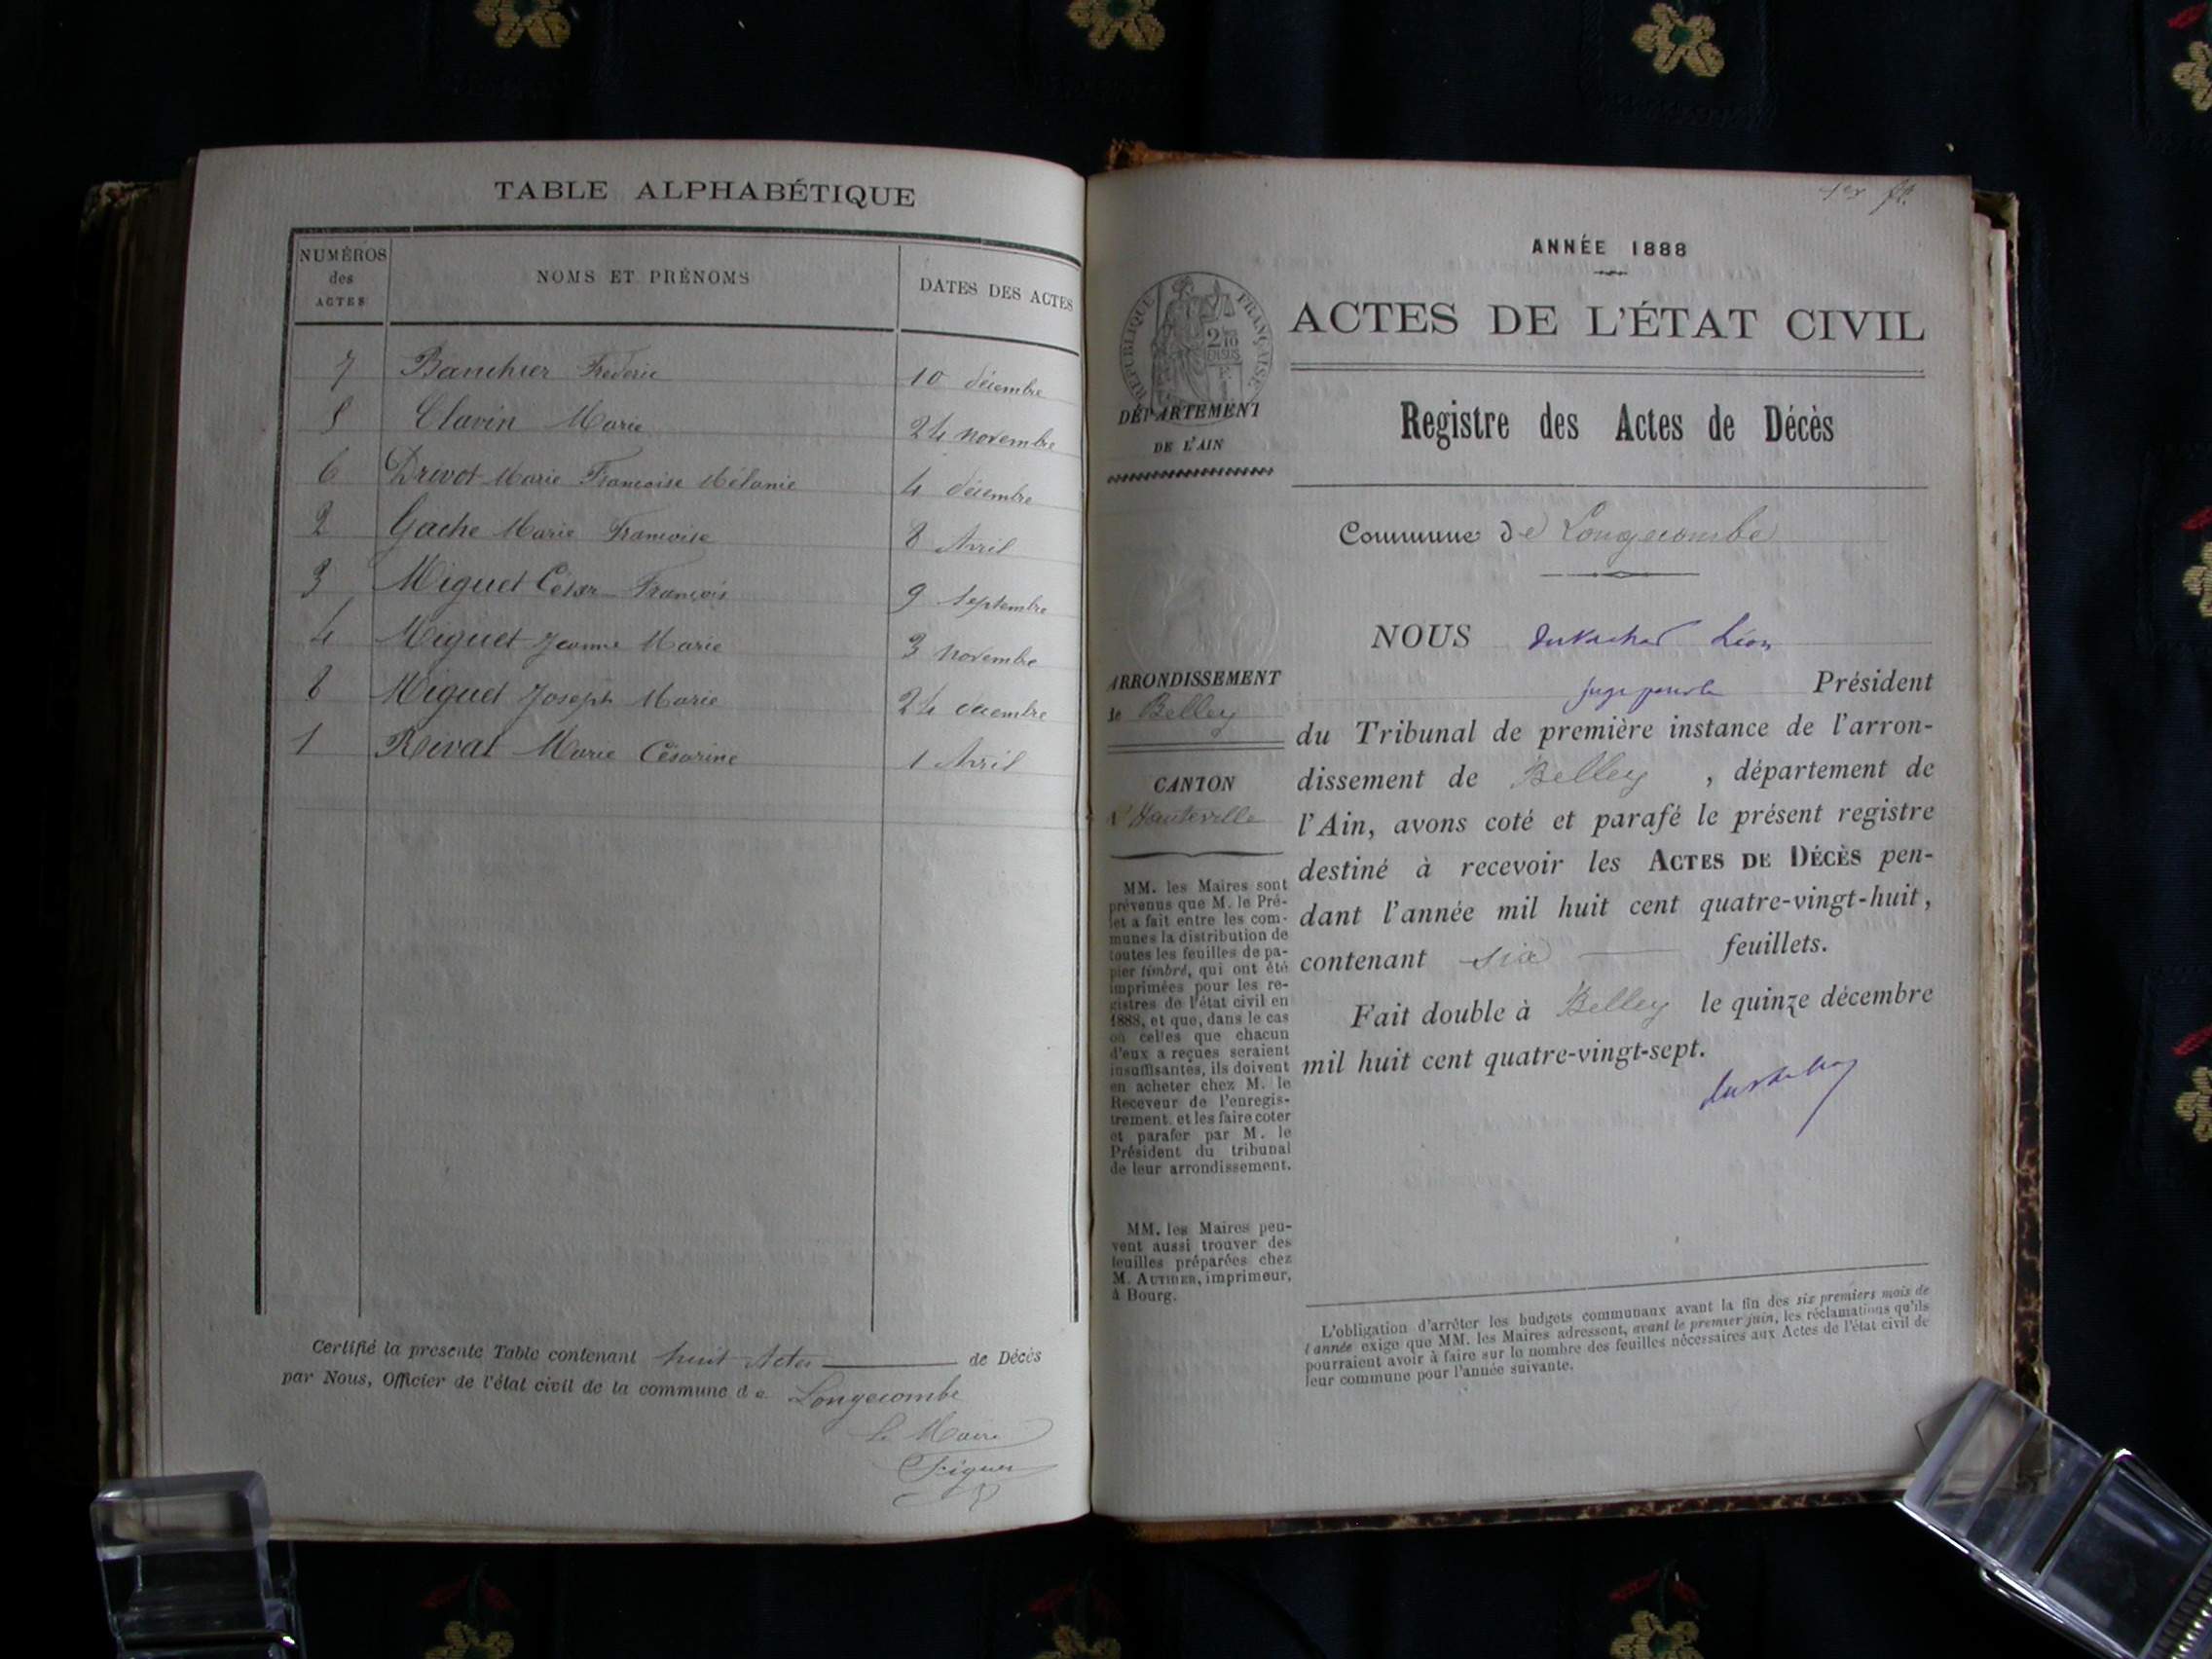 TABLE ALPHABÉTIQUE
NUMÉROS des ACTES
NOMS ET PRÉNOMS
DATES DES ACTES
7 Banchier Frederic 10 décembre
5 Clavin Marie 24 novembre
6 Drivot Marie Françoise Mélanie 4 décembre
2 Gache Marie Françoise 8 Avril
3 Miguet César François 9 septembre
4 Miguet Jeanne Marie 3 novembre
8 Miguet Joseph Marie 24 décembre
1 Rival Marie Césarine 1 Avril
Certifié la présente Table contenant huit Actes de Décès
par Nous, Officier de l'état civil de la commune de Longecombe
Le Maire
ANNÉE 1888
ACTES DE L'ÉTAT CIVIL
Registre des Actes de Décès
RÉPUBLIQUE FRANÇAISE
DÉPARTEMENT
DE L'AIN
Commune de Longecombe
ARRONDISSEMENT
de Belley
CANTON
d'Hauteville
MM. les Maires sont
prévenus que M. le Pré-
fet a fait entre les com-
munes la distribution de
toutes les feuilles de pa-
pier timbré, qui ont été
imprimées pour les re-
gistres de l'état civil en
1888, et que, dans le cas
où celles que chacun
d'eux a reçues seraient
insuffisantes, ils doivent
en acheter chez M. le
Receveur de l'enregis-
trement, et les faire coter
et parafer par M. le
Président du tribunal
de leur arrondissement.
MM. les Maires peu-
vent aussi trouver des
feuilles préparées chez
M. AUTHIER, imprimeur,
à Bourg.
NOUS Léon
juge Président
du Tribunal de première instance de l'arron-
dissement de Belley, département de
l'Ain, avons coté et parafé le présent registre
destiné à recevoir les ACTES DE DÉCÈS pen-
dant l'année mil huit cent quatre-vingt-huit,
contenant six feuillets.
Fait double à Belley le quinze décembre
mil huit cent quatre-vingt-sept.
L'obligation d'arrêter les budgets communaux avant la fin des six premiers mois de
l'année exige que MM. les Maires adressent, avant le premier juin, les réclamations qu'ils
pourraient avoir à faire sur le nombre des feuilles nécessaires aux Actes de l'état civil de
leur commune pour l'année suivante.